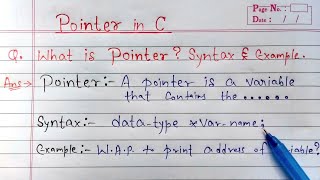 Pointer in C
Page No.:
Date: / /
Q. What is Pointer? Syntax & Example.
Ans → Pointer:- A pointer is a variable
that contains the ......
Syntax:- data-type *var-name;
Example:- W.A.P. to print address of variable?